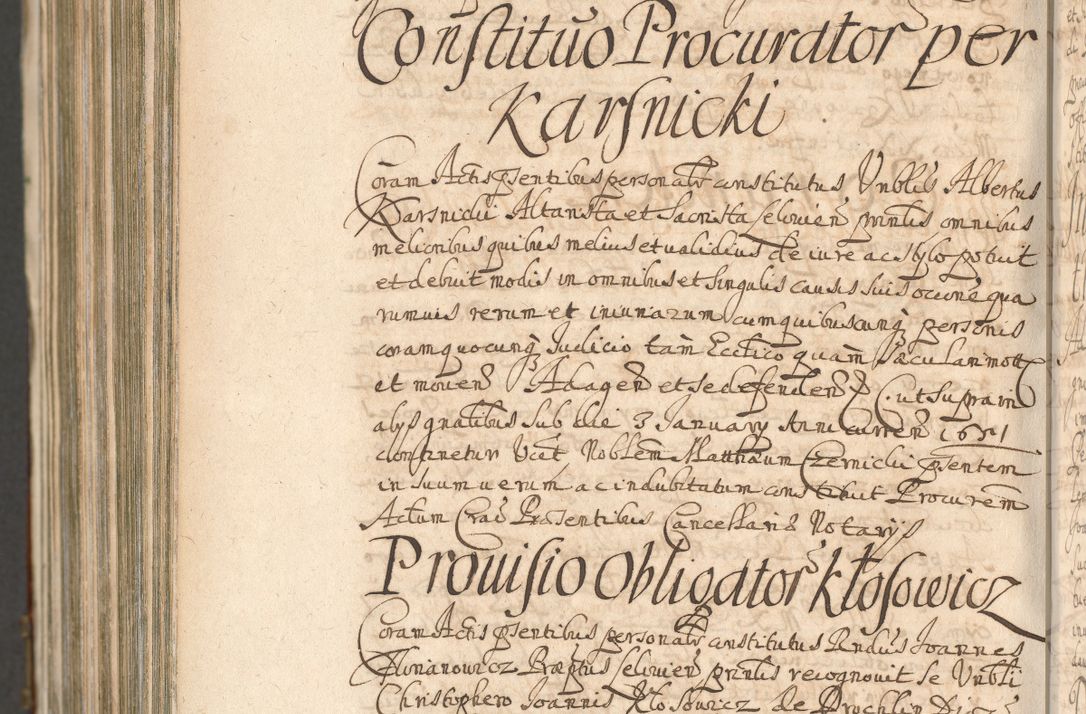 Constituo Procurator per
Karsnicki
Coram Actis pſentibus personalr constitutus Vnblis Albertus
Karsnicki Altarista et Sacrista principlis omnibus
melioribus quibus melius et validius de iure ac stylo potuit
et debuit modis in omnibus et singulis causis suis ocione qua
rumuis rerum et iniuriarum cum quibuscunq personis
coram quocunq Iudicio tam Ecctico quam Sæculari mott
et mouen Ad agen et se defenden ut supra in
alys gnalibus sub die 3 January Anni curren 1651
continetur Vent Noblem Matthæum Czernicki pſentem
in suum uerum ac indubitatum constituit Procurem
Actum Crac Præsentibus Cancellariæ Notarijs
Prouisio Obligator Kłosowicz
Coram Actis pſentibus personalr constitutus Rndus Ioannes
Florianowicz Præptus recognouit se Vnbli
Christophero Ioannis Kłosowicz de Prochlin